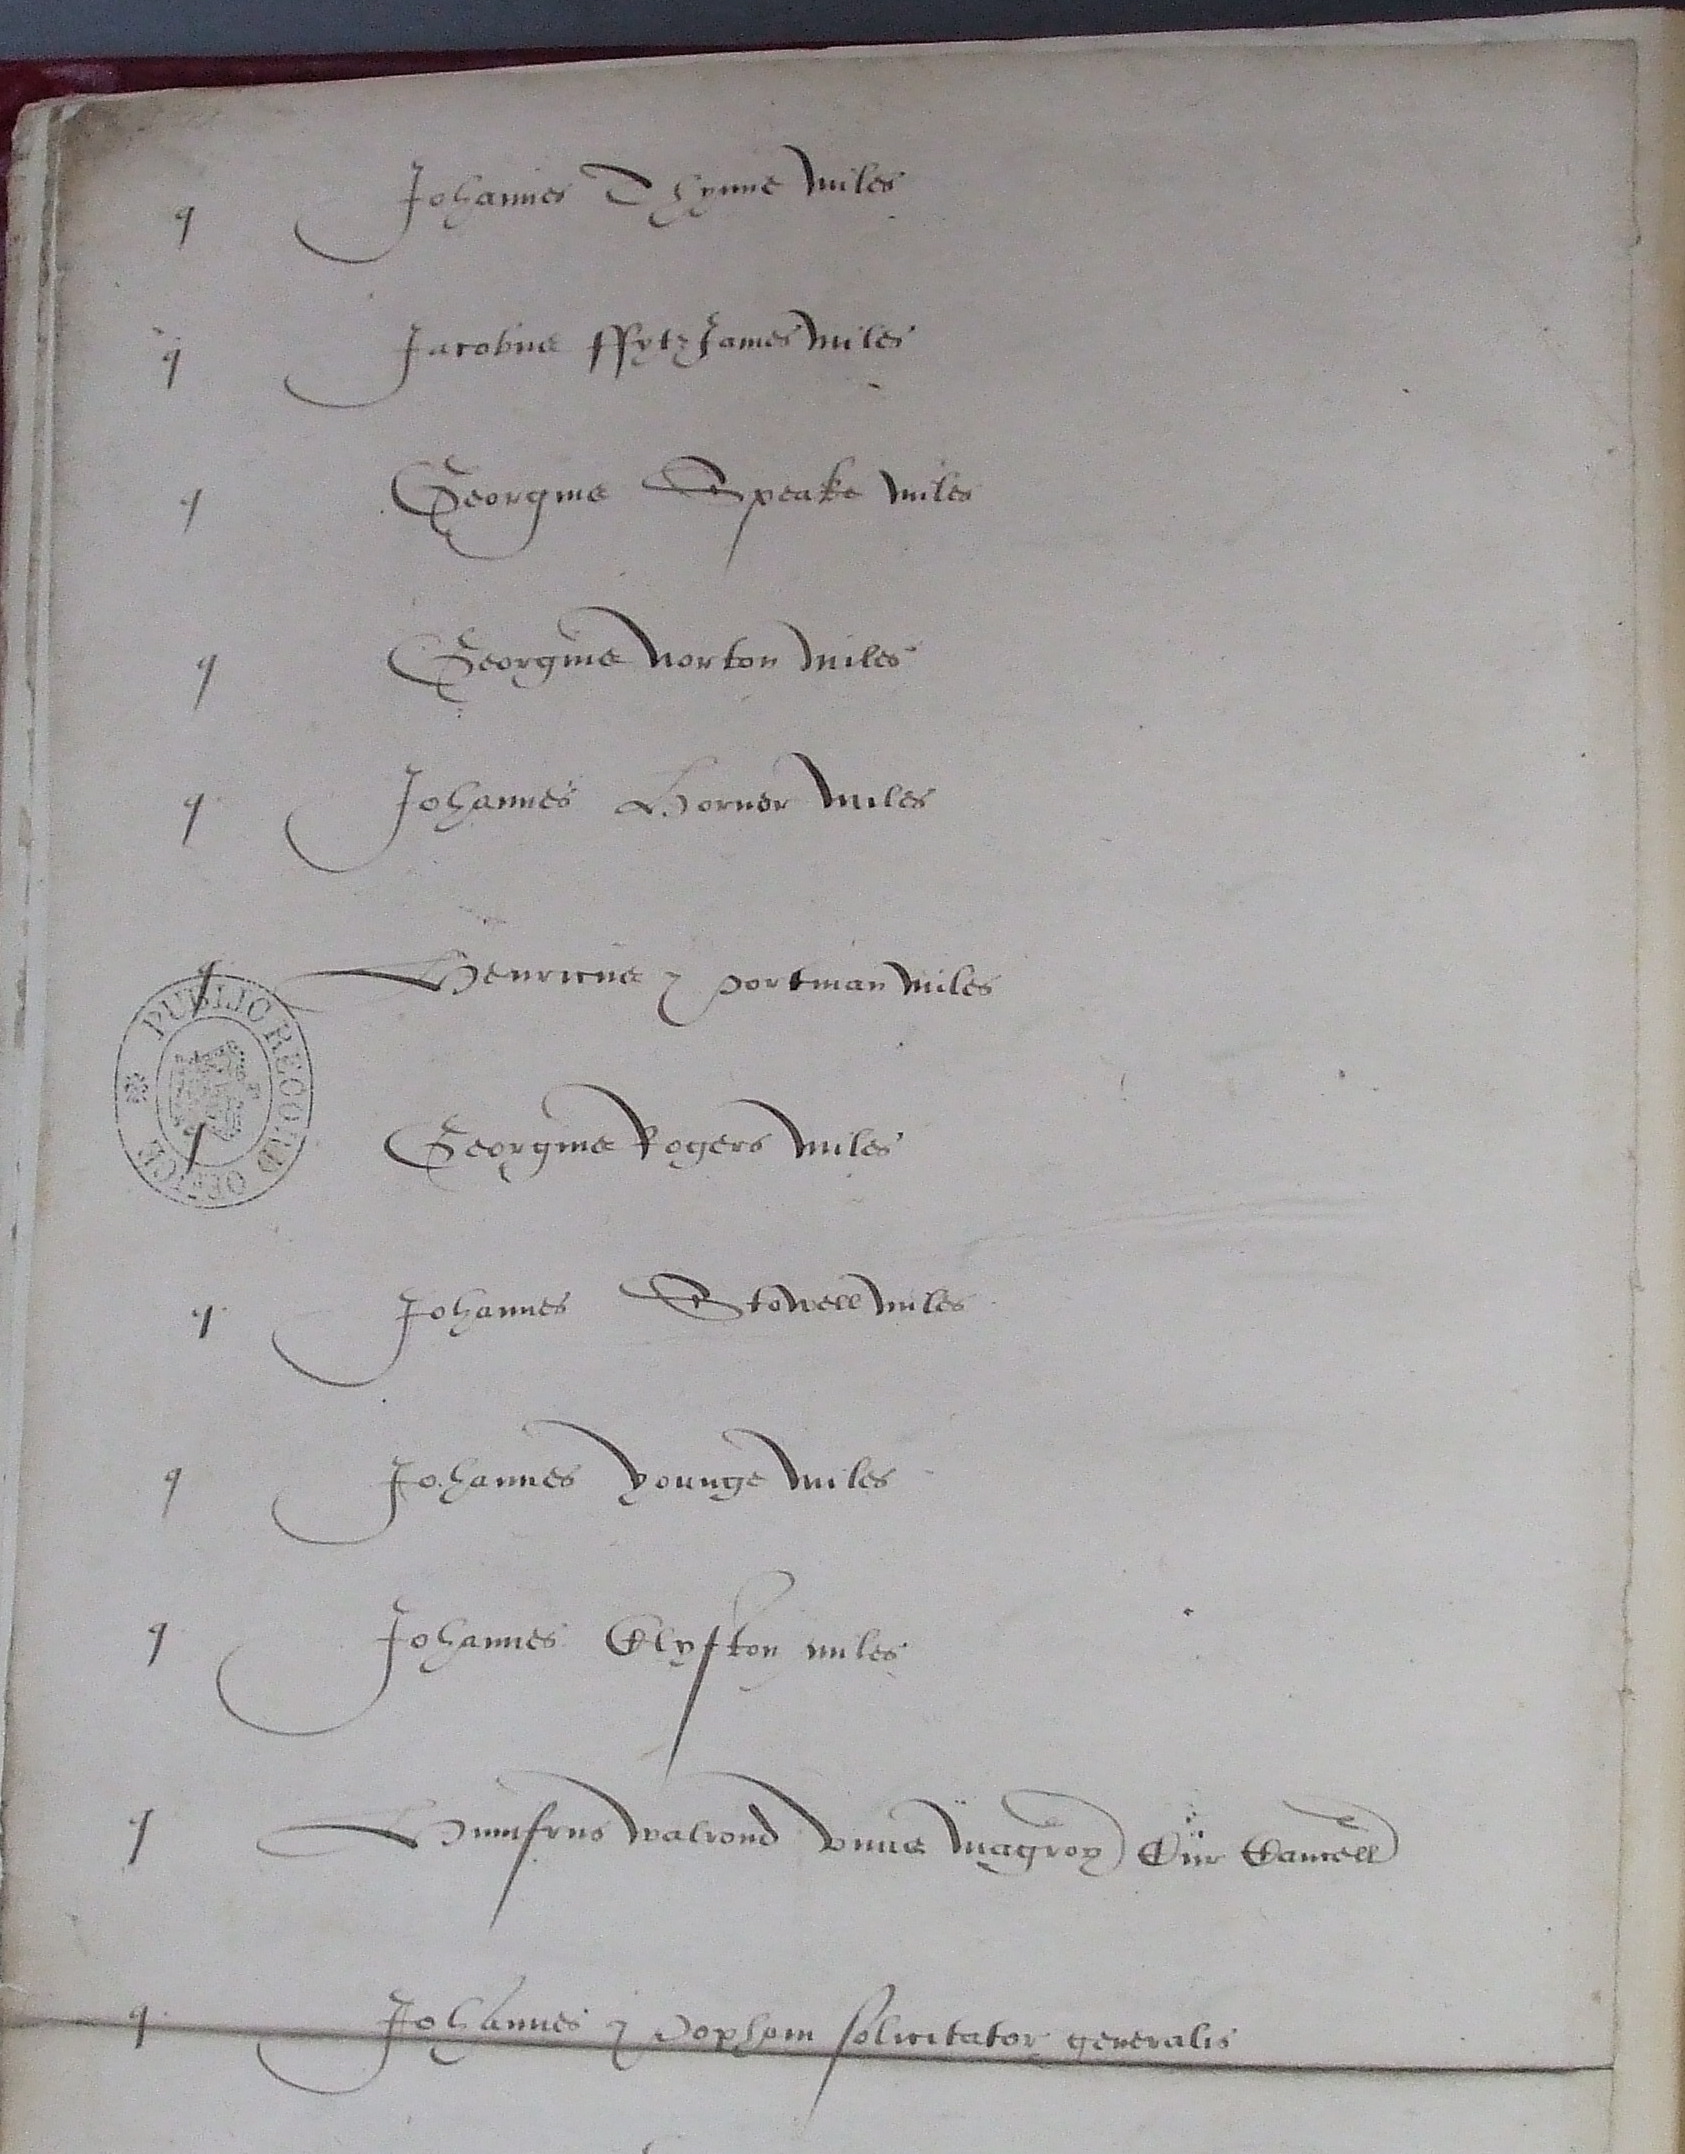 q Johannes Thynne miles
q Jacobus ffytzJames miles
q Georgius Speake miles
q Georgius Norton miles
q Johannes Horner miles
q Henricus Portman miles
PUBLIC RECORD OFFICE
q Georgius Rogers miles
q Johannes Stowell miles
q Johannes Younge miles
q Johannes Clyfton miles
q Humfrus Walrond unus Magroz Cur Cancell
q Johannes Popham solicitator generalis